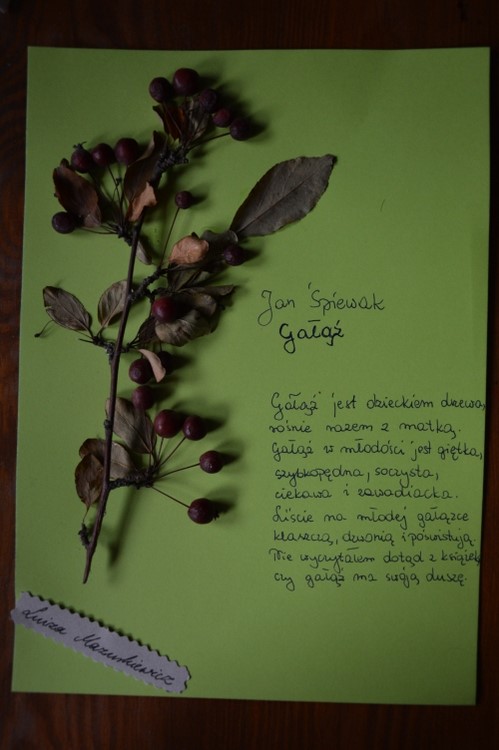 Jan Śpiewak
Gałąź
Gałąź jest dzieckiem drzewa,
rośnie razem z matką.
Gałąź w młodości jest giętka,
szybkopędna, soczysta,
ciekawa i zawadiacka.
Liście na młodej gałązce
klaszczą, dzwonią i poświstują.
Nie wyczytałem dotąd z książek
czy gałąź ma swoją duszę.
Luiza Mazurkiewicz